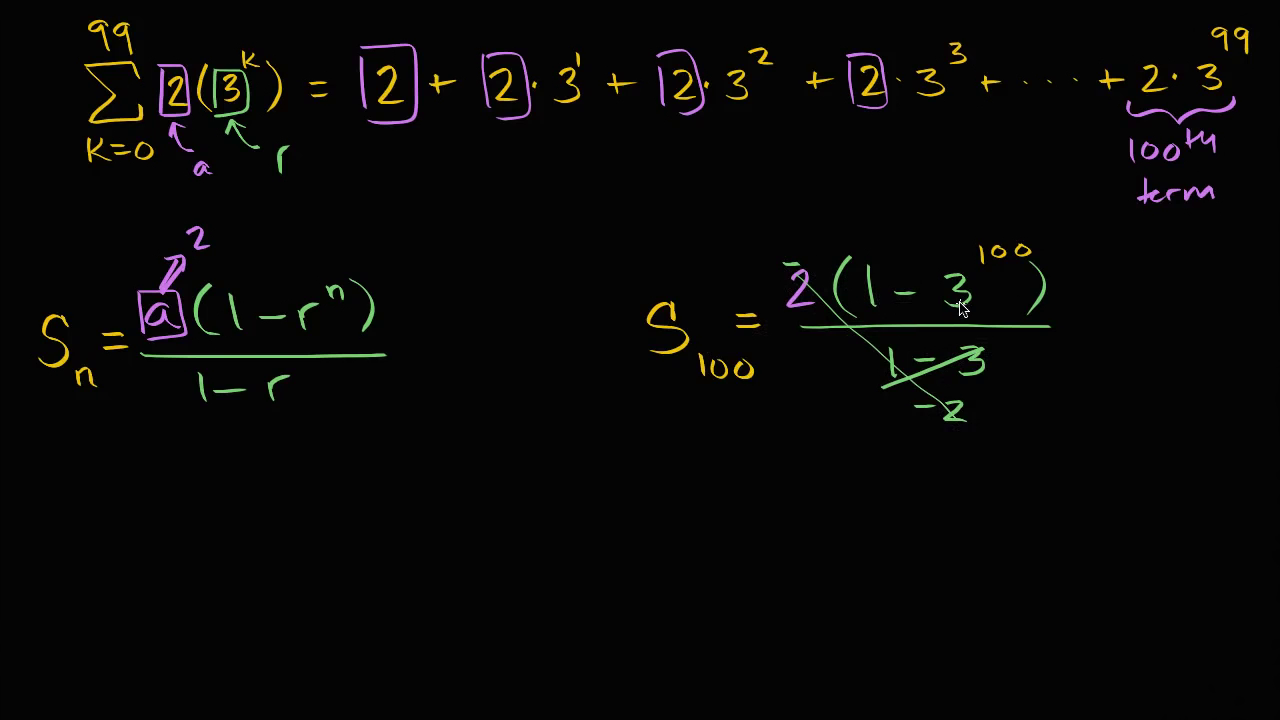 99
∑ 2(3^k) = 2 + 2·3^1 + 2·3^2 + 2·3^3 + ··· + 2·3^99
k=0
a r 100th
term
2
S_n = a(1-r^n)
1-r
S_100 = -2(1-3^100)
1-3
-2